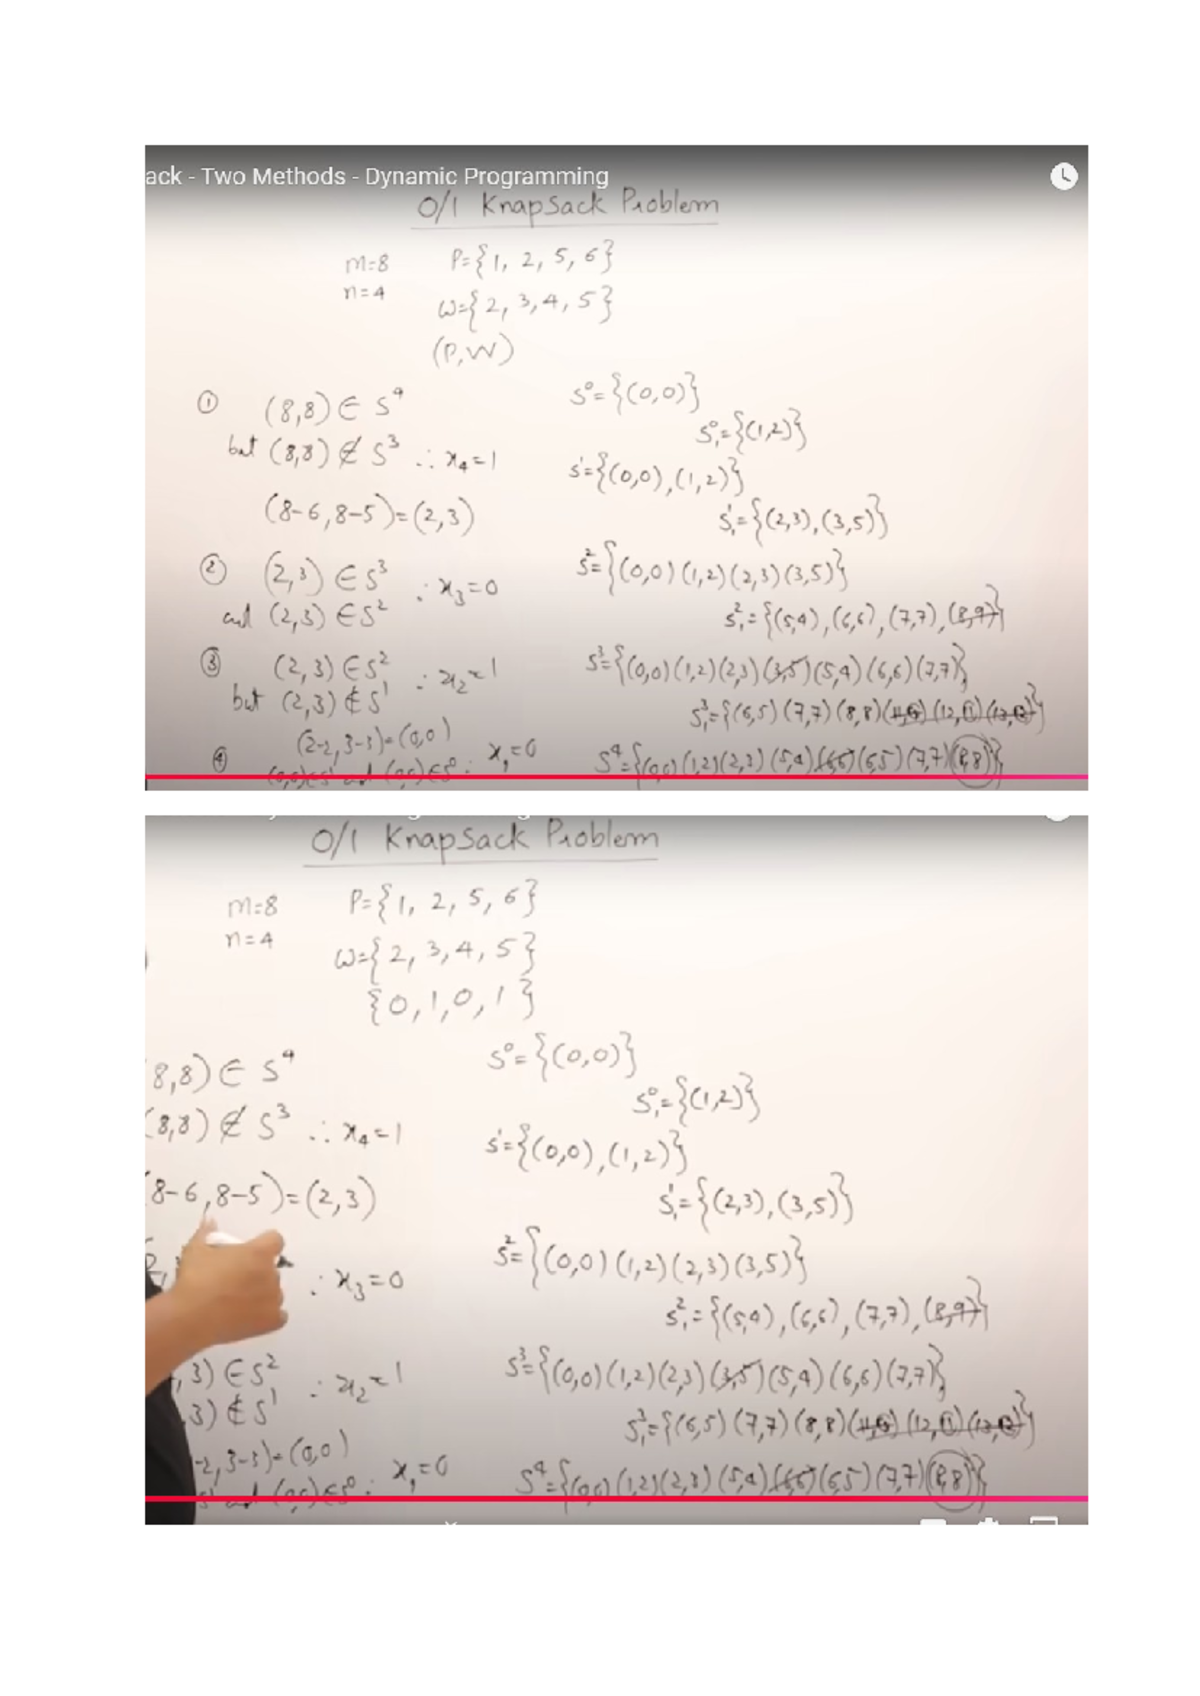 ack - Two Methods - Dynamic Programming
0/1 Knapsack Problem
m=8 P={1, 2, 5, 6}
n=4 w={2, 3, 4, 5}
(P,W)
① (8,8) ∈ S⁴
but (8,8) ∉ S³ ∴ x₄=1
(8-6, 8-5)=(2,3)
② (2,3) ∈ S³
and (2,3) ∈ S² ∴ x₃=0
③ (2,3) ∈ S²
but (2,3) ∉ S¹ ∴ x₂=1
(2-2, 3-3)=(0,0)
④ (0,0)∈S¹ and (0,0)∈S⁰ ∴ x₁=0
S⁰={(0,0)}
S⁰₁={(1,2)}
S¹={(0,0),(1,2)}
S¹₁={(2,3),(3,5)}
S²={(0,0)(1,2)(2,3)(3,5)}
S²₁={(5,4),(6,6),(7,7),(8,9)}
S³={(0,0)(1,2)(2,3)(3,5)(5,4)(6,6)(7,7)}
S³₁={(6,5)(7,7)(8,8)(11,9)(12,11)(13,12)}
S⁴={(0,0)(1,2)(2,3)(5,4)(6,6)(6,5)(7,7)(8,8)}
0/1 Knapsack Problem
m=8 P={1, 2, 5, 6}
n=4 w={2, 3, 4, 5}
{0, 1, 0, 1}
8,8) ∈ S⁴
(8,8) ∉ S³ ∴ x₄=1
8-6, 8-5)=(2,3)
∴ x₃=0
, 3) ∈ S²
,3) ∉ S¹ ∴ x₂=1
-2, 3-3)=(0,0)
S¹ and (0,0)∈S⁰ ∴ x₁=0
S⁰={(0,0)}
S⁰₁={(1,2)}
S¹={(0,0),(1,2)}
S¹₁={(2,3),(3,5)}
S²={(0,0)(1,2)(2,3)(3,5)}
S²₁={(5,4),(6,6),(7,7),(8,9)}
S³={(0,0)(1,2)(2,3)(3,5)(5,4)(6,6)(7,7)}
S³₁={(6,5)(7,7)(8,8)(11,9)(12,11)(13,12)}
S⁴={(0,0)(1,2)(2,3)(5,4)(6,6)(6,5)(7,7)(8,8)}